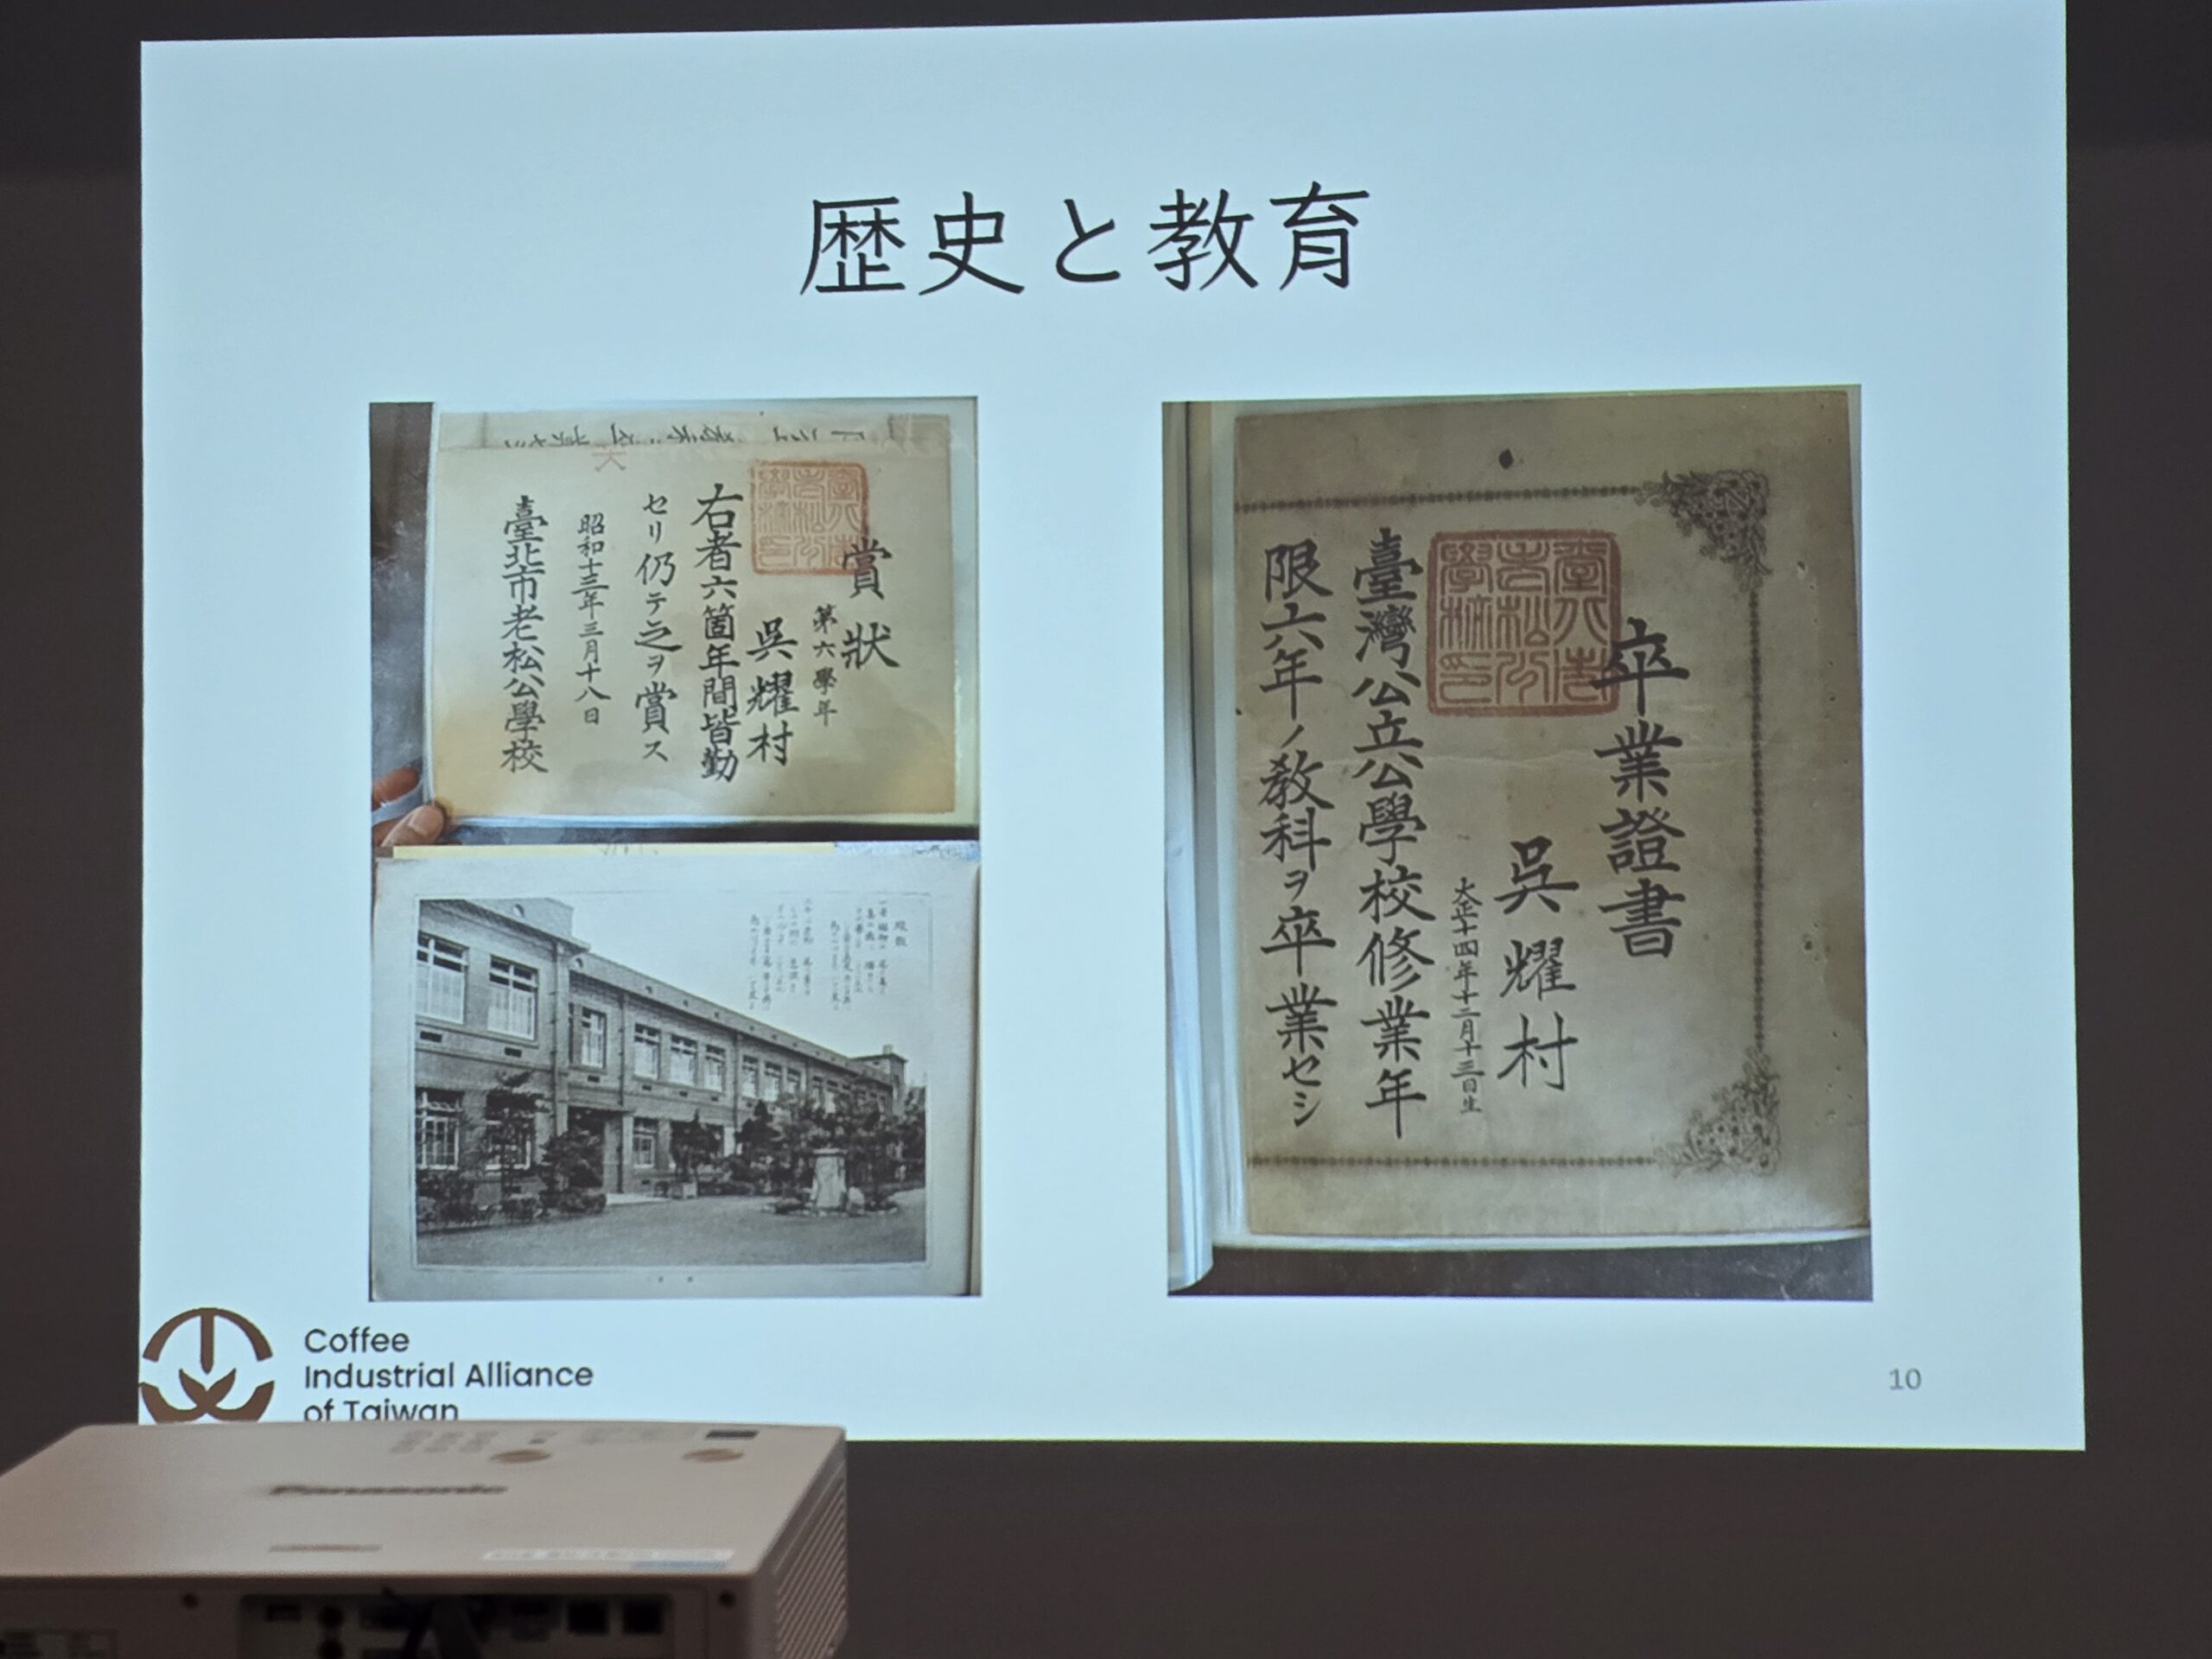 歴史と教育
賞狀
第六學年
吳耀村
右者六箇年間皆勤
セリ仍テ之ヲ賞ス
昭和十三年三月十八日
臺北市老松公學校
卒業證書
吳耀村
大正十四年十二月十三日生
臺灣公立公學校修業年
限六年ノ教科ヲ卒業セシ
Coffee
Industrial Alliance
of Taiwan
10
Panasonic